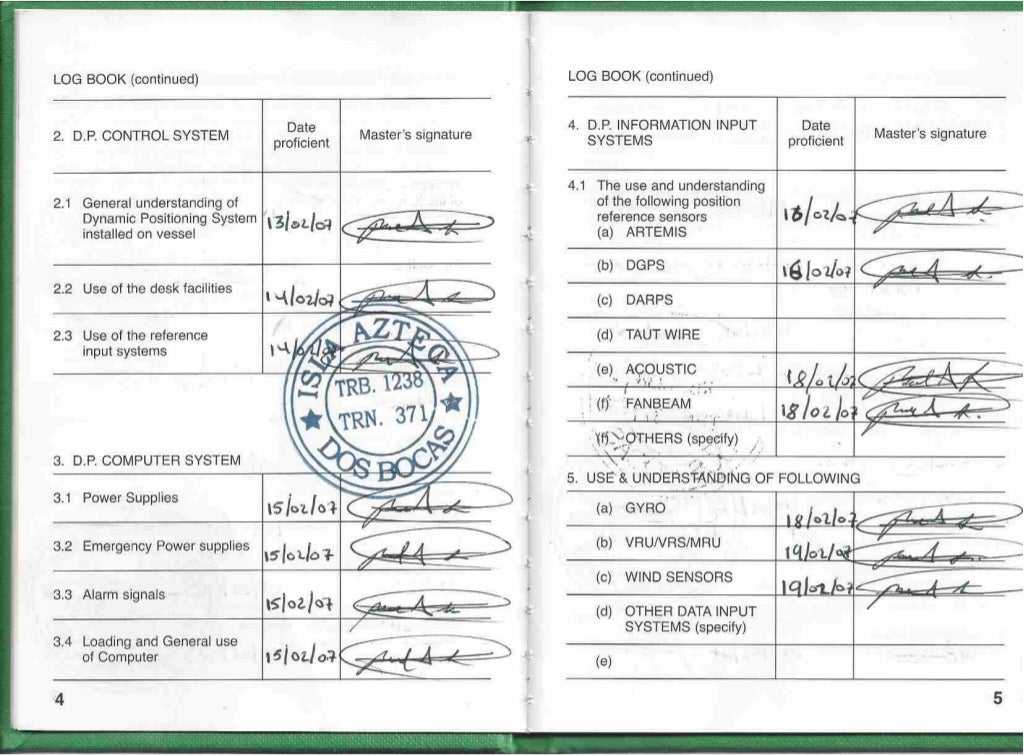 LOG BOOK (continued)
2. D.P. CONTROL SYSTEM
Date proficient
Master's signature
2.1 General understanding of
Dynamic Positioning System
installed on vessel
13/02/07
2.2 Use of the desk facilities
14/02/07
2.3 Use of the reference
input systems
ISLA AZTECA
TRB. 1238
TRN. 371
DOS BOCAS
3. D.P. COMPUTER SYSTEM
3.1 Power Supplies
15/02/07
3.2 Emergency Power supplies
15/02/07
3.3 Alarm signals
15/02/07
3.4 Loading and General use
of Computer
15/02/07
4
LOG BOOK (continued)
4. D.P. INFORMATION INPUT
SYSTEMS
Date proficient
Master's signature
4.1 The use and understanding
of the following position
reference sensors
(a) ARTEMIS
(b) DGPS
(c) DARPS
(d) TAUT WIRE
(e) ACOUSTIC
(f) FANBEAM
18/02/07
(f) OTHERS (specify)
5. USE & UNDERSTANDING OF FOLLOWING
(a) GYRO
18/02/07
(b) VRU/VRS/MRU
19/02/07
(c) WIND SENSORS
19/02/07
(d) OTHER DATA INPUT
SYSTEMS (specify)
(e)
5